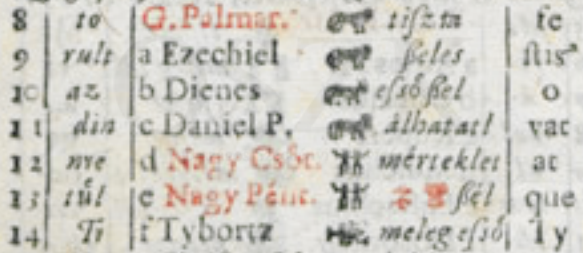 8 to G. Palmar. tiszta fe
9 rult a Ezechiel ßeles stis
10 az b Dienes essö ßel o
11 din c Daniel P. álhatatl vat
12 nye d Nagy Csöt. mértéklet at
13 tül e Nagy Pént. ßél que
14 Ti f Tybortz meleg essö Ty